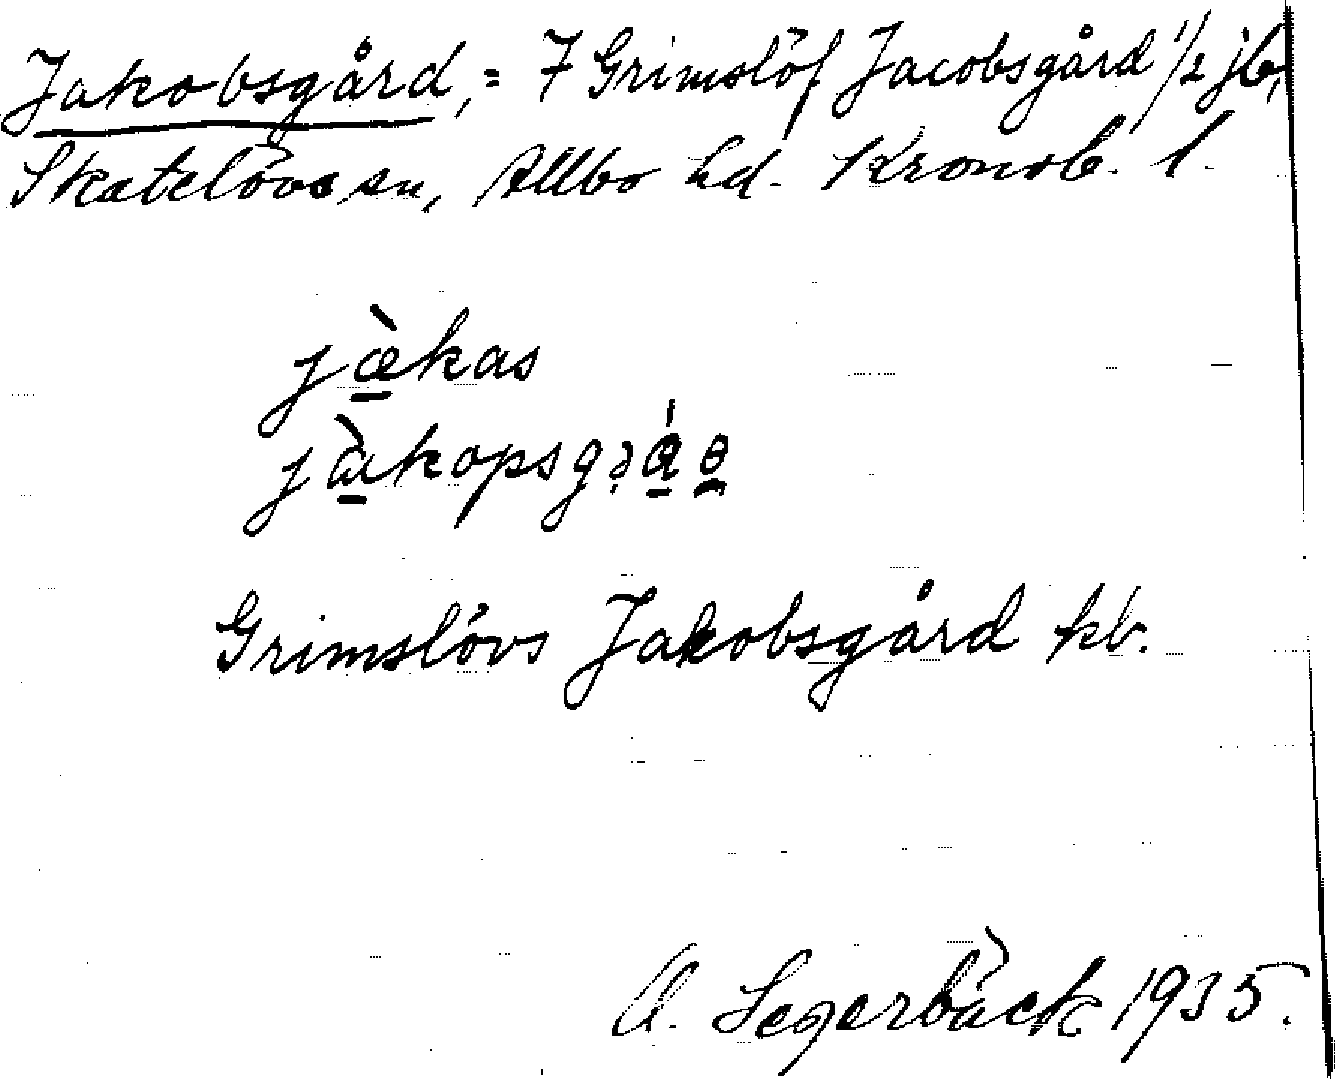 Jakobsgård, = 7 Grimslöf Jacobsgård 1/2 jb,
Skatelövs sn, Allbo hd. Kronob. l.
jæ̱̀kas
jà̱kopsgə̣á̱ə̱
Grimslövs Jakobsgård kb.
A. Segerbäck 1935.